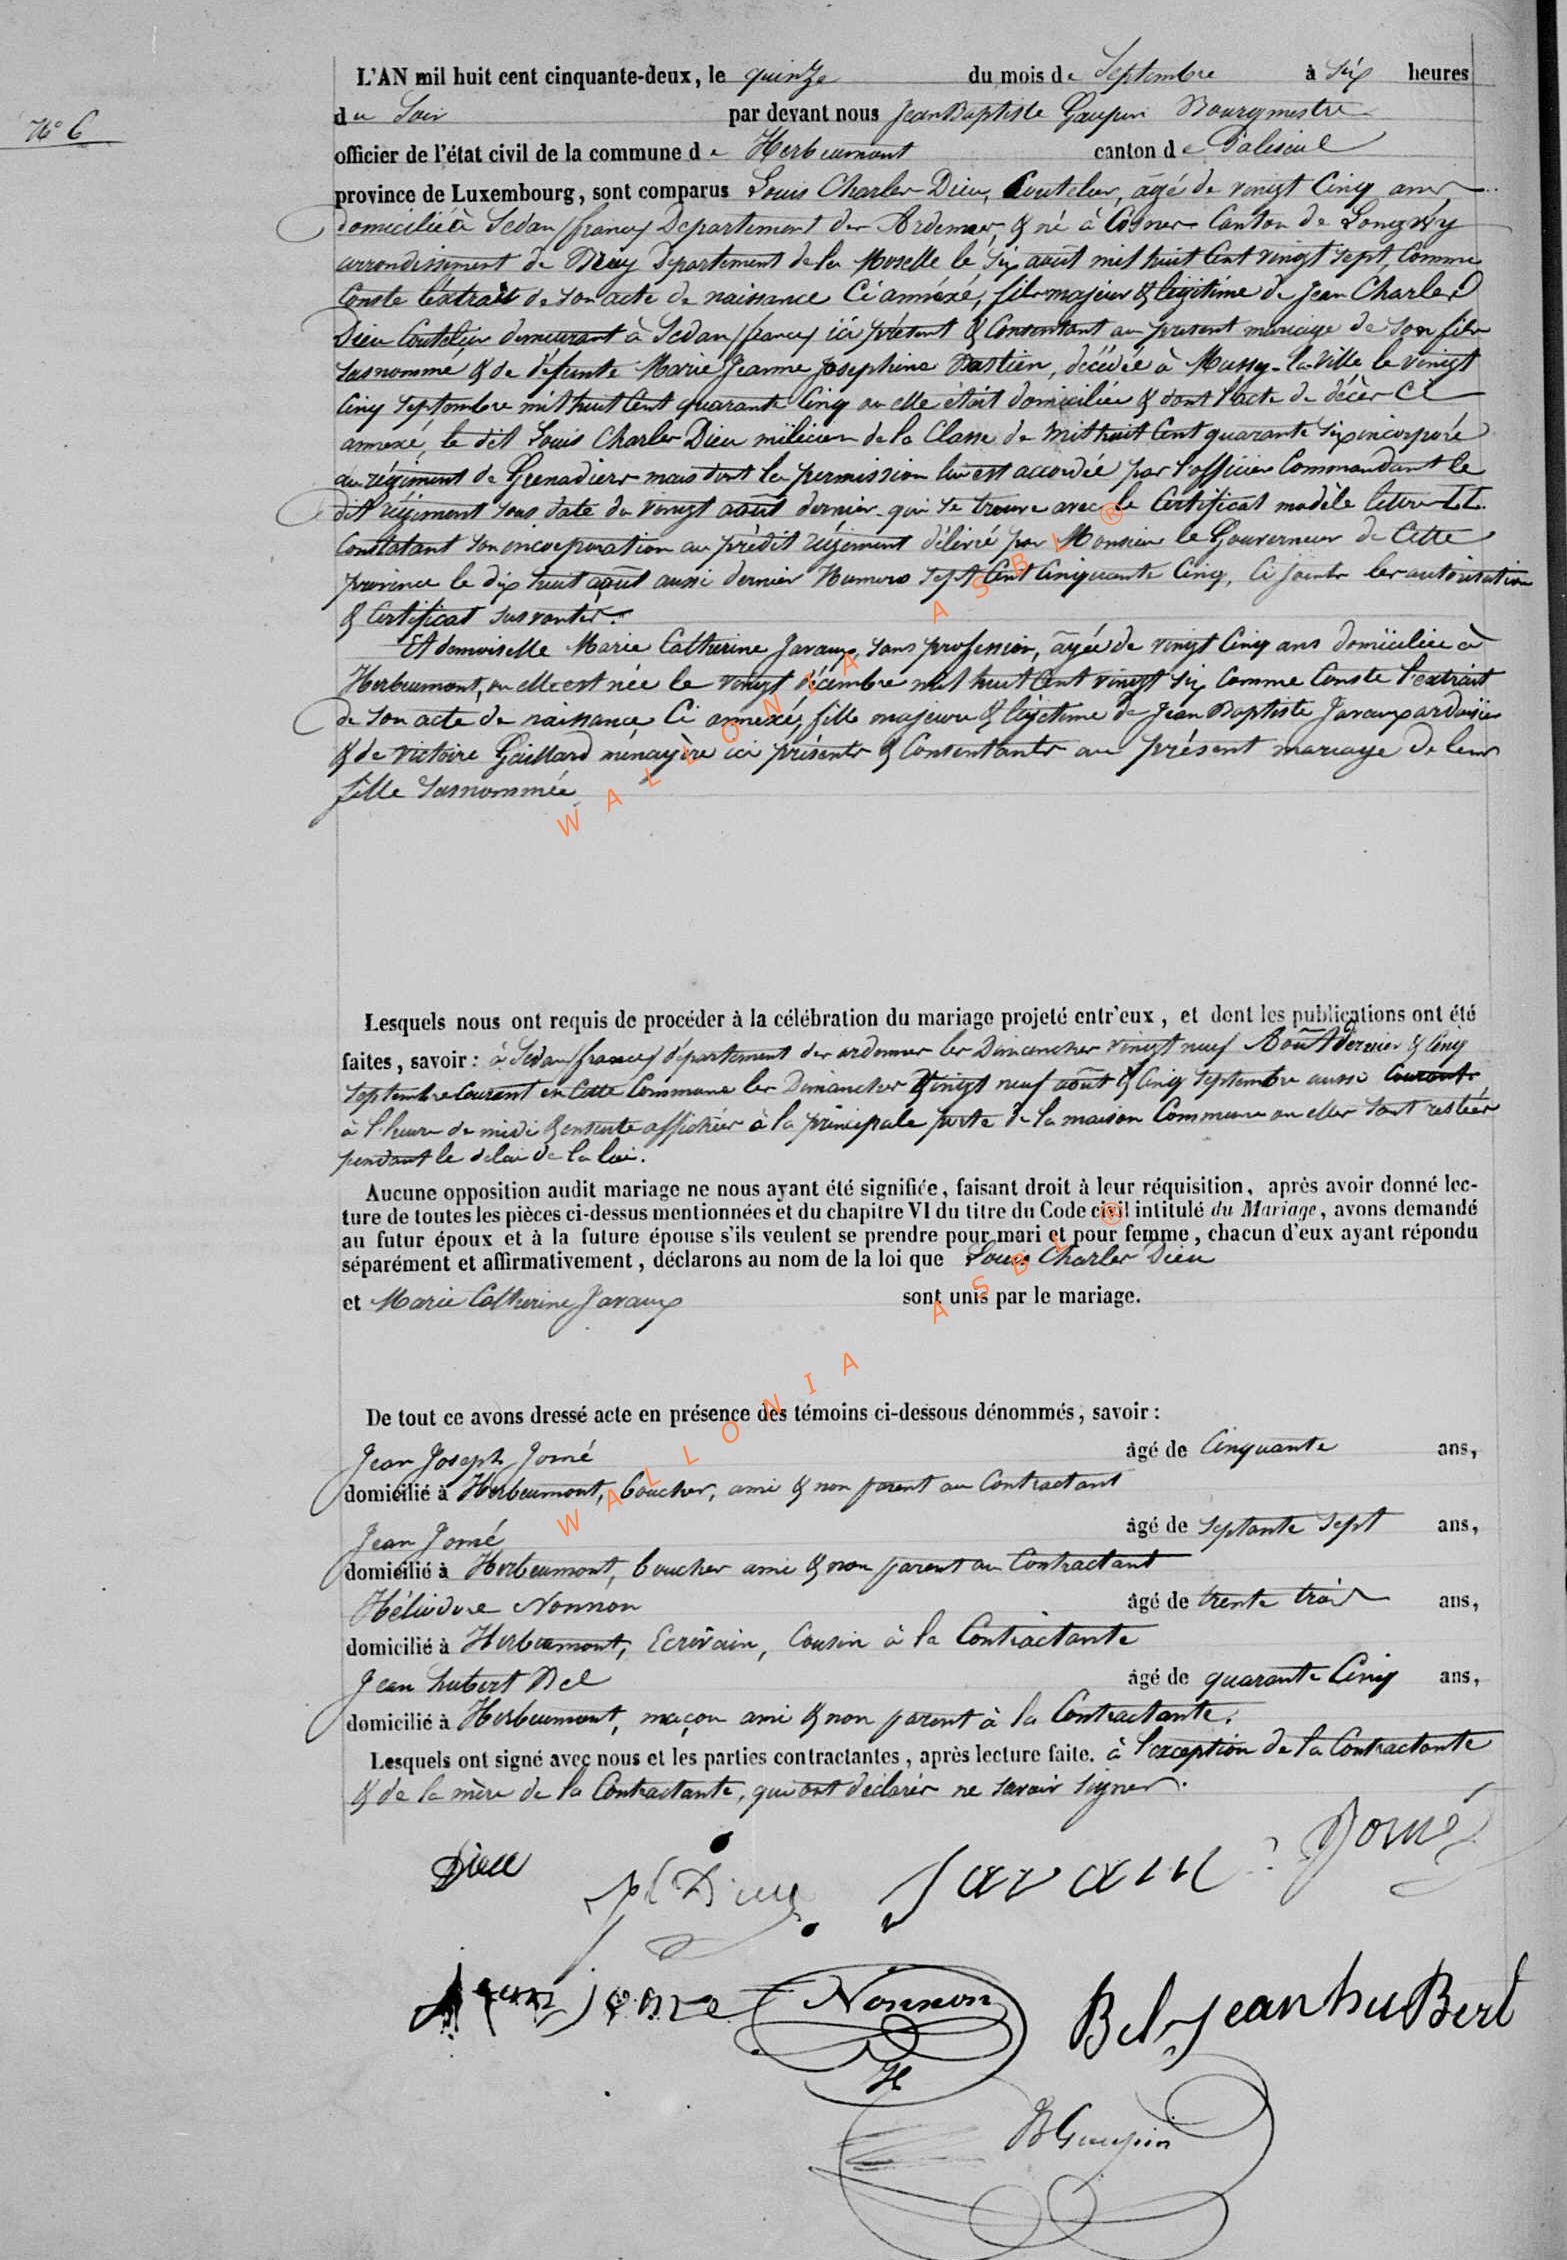 N° 6
L'AN mil huit cent cinquante-deux, le quinze du mois de Septembre à six heures
du Soir par devant nous Jean Baptiste Gaupin Bourgmestre
officier de l'état civil de la commune de Herbeumont canton de Paliseul
province de Luxembourg, sont comparus Louis Charles Dieu, Coutelier, âgé de vingt Cinq ans
domicilié à Sedan (france) Departement des Ardennes, & né à Cosnes Canton de Longwy
arrondissement de Briey Departement de la Moselle le six août mil huit Cent vingt sept, Comme
Conste l'extrait de son acte de naissance Ci annéxé, fils majeur & légitime de Jean Charles
Dieu Coutelier demeurant à Sedan (france) ici présent & Consentant au present mariage de son fils
susnommé & de défunte Marie Jeanne Josephine Bastien, décédée à Mussy-la-Ville le vingt
Cinq Septembre mil huit Cent quarante Cinq ou elle était domiciliée & dont l'acte de décès Ci
annexé, le dit Louis Charles Dieu milicien de la Classe de mil huit Cent quarante six incorporé
au régiment de Grenadiers mais dont la permission lui est accordée par l'officier Commandant le
dit régiment sous date du vingt août dernier qui se trouve avec le Certificat modèle lettre LL.
Constatant son incorporation au prédit régiment délivré par Monsieur le Gouverneur de Cette
province le dix huit août aussi dernier Numero sept Cent Cinquante Cinq, Ci joints les autorisation
& Certificat susvantés.
Et demoiselle Marie Catherine Javaux, sans profession, âgée de vingt Cinq ans domiciliée à
Herbeumont, ou elle est née le vingt décembre mil huit Cent vingt six Comme Conste l'extrait
de son acte de naissance Ci annexé, fille majeure & légitime de Jean Baptiste Javaux ardoisier
& de Victoire Gaillard ménagère ici présents & Consentants au présent mariage de leur
fille susnommée
Lesquels nous ont requis de procéder à la célébration du mariage projeté entr'eux, et dont les publications ont été
faites, savoir : à Sedan (france) département des ardennes les Dimanches vingt neuf Août dernier & Cinq
Septembre Courant en Cette Commune les Dimanches vingt neuf août & Cinq Septembre aussi Courants
à l'heure de midi & ensuite affichées à la principale porte de la maison Commune ou elles sont restées
pendant le delai de la loi.
Aucune opposition audit mariage ne nous ayant été signifiée, faisant droit à leur réquisition, après avoir donné lec-
ture de toutes les pièces ci-dessus mentionnées et du chapitre VI du titre du Code civil intitulé du Mariage, avons demandé
au futur époux et à la future épouse s'ils veulent se prendre pour mari et pour femme, chacun d'eux ayant répondu
séparément et affirmativement, déclarons au nom de la loi que Louis Charles Dieu
et Marie Catherine Javaux sont unis par le mariage.
De tout ce avons dressé acte en présence des témoins ci-dessous dénommés, savoir :
Jean Joseph Jomé âgé de Cinquante ans,
domicilié à Herbeumont, boucher, ami & non parent au Contractant
Jean Jomé âgé de septante sept ans,
domicilié à Herbeumont, boucher ami & non parent au Contractant
Héliodore Nonnon âgé de trente trois ans,
domicilié à Herbeumont, Ecrivain, Cousin à la Contractante
Jean hubert Bel âgé de quarante Cinq ans,
domicilié à Herbeumont, maçon ami & non parent à la Contractante.
Lesquels ont signé avec nous et les parties contractantes, après lecture faite. à l'exception de la Contractante
& de la mère de la Contractante, qui ont déclarés ne savoir signer.
Dieu Dieu Javaux Jomé
Jean jome Nonnon H Bel Jean huBert
JB Gaupin
WALLONIA ASBL ®
WALLONIA ASBL ®